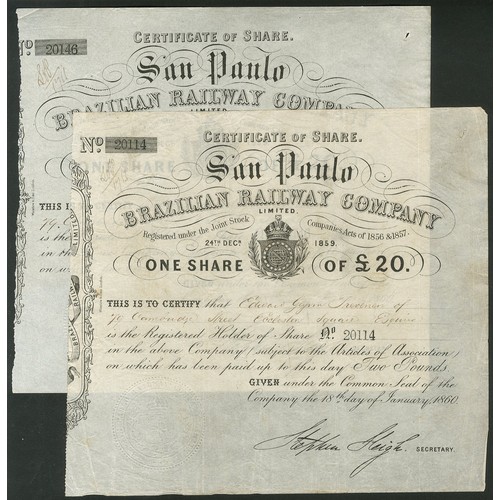 No 20146
CERTIFICATE OF SHARE.
San Paulo
BRAZILIAN RAILWAY COMPANY
LIMITED
ONE SHARE
THIS I
is the
in the
on w
No 20114
CERTIFICATE OF SHARE.
San Paulo
BRAZILIAN RAILWAY COMPANY
LIMITED.
Registered under the Joint Stock Companies Acts of 1856 & 1857.
24TH DECR. 1859.
ONE SHARE OF £20.
THIS IS TO CERTIFY that Edward of
79 Cambridge Street Square Esquire
is the Registered Holder of Share No 20114
in the above Company (subject to the Articles of Association)
on which has been paid up to this day Two Pounds
GIVEN under the Common Seal of the
Company the 18th day of January, 1860.
Stephen Sleigh. SECRETARY.